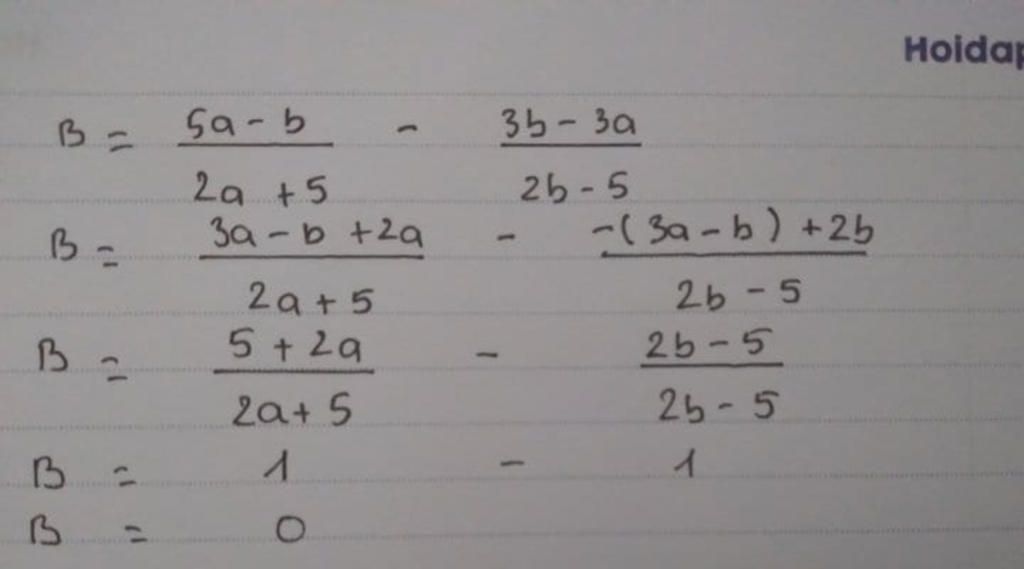 Hoidap
B = (5a - b)/(2a + 5) - (3b - 3a)/(2b - 5)
B = (3a - b + 2a)/(2a + 5) - (-(3a - b) + 2b)/(2b - 5)
B = (5 + 2a)/(2a + 5) - (2b - 5)/(2b - 5)
B = 1 - 1
B = 0